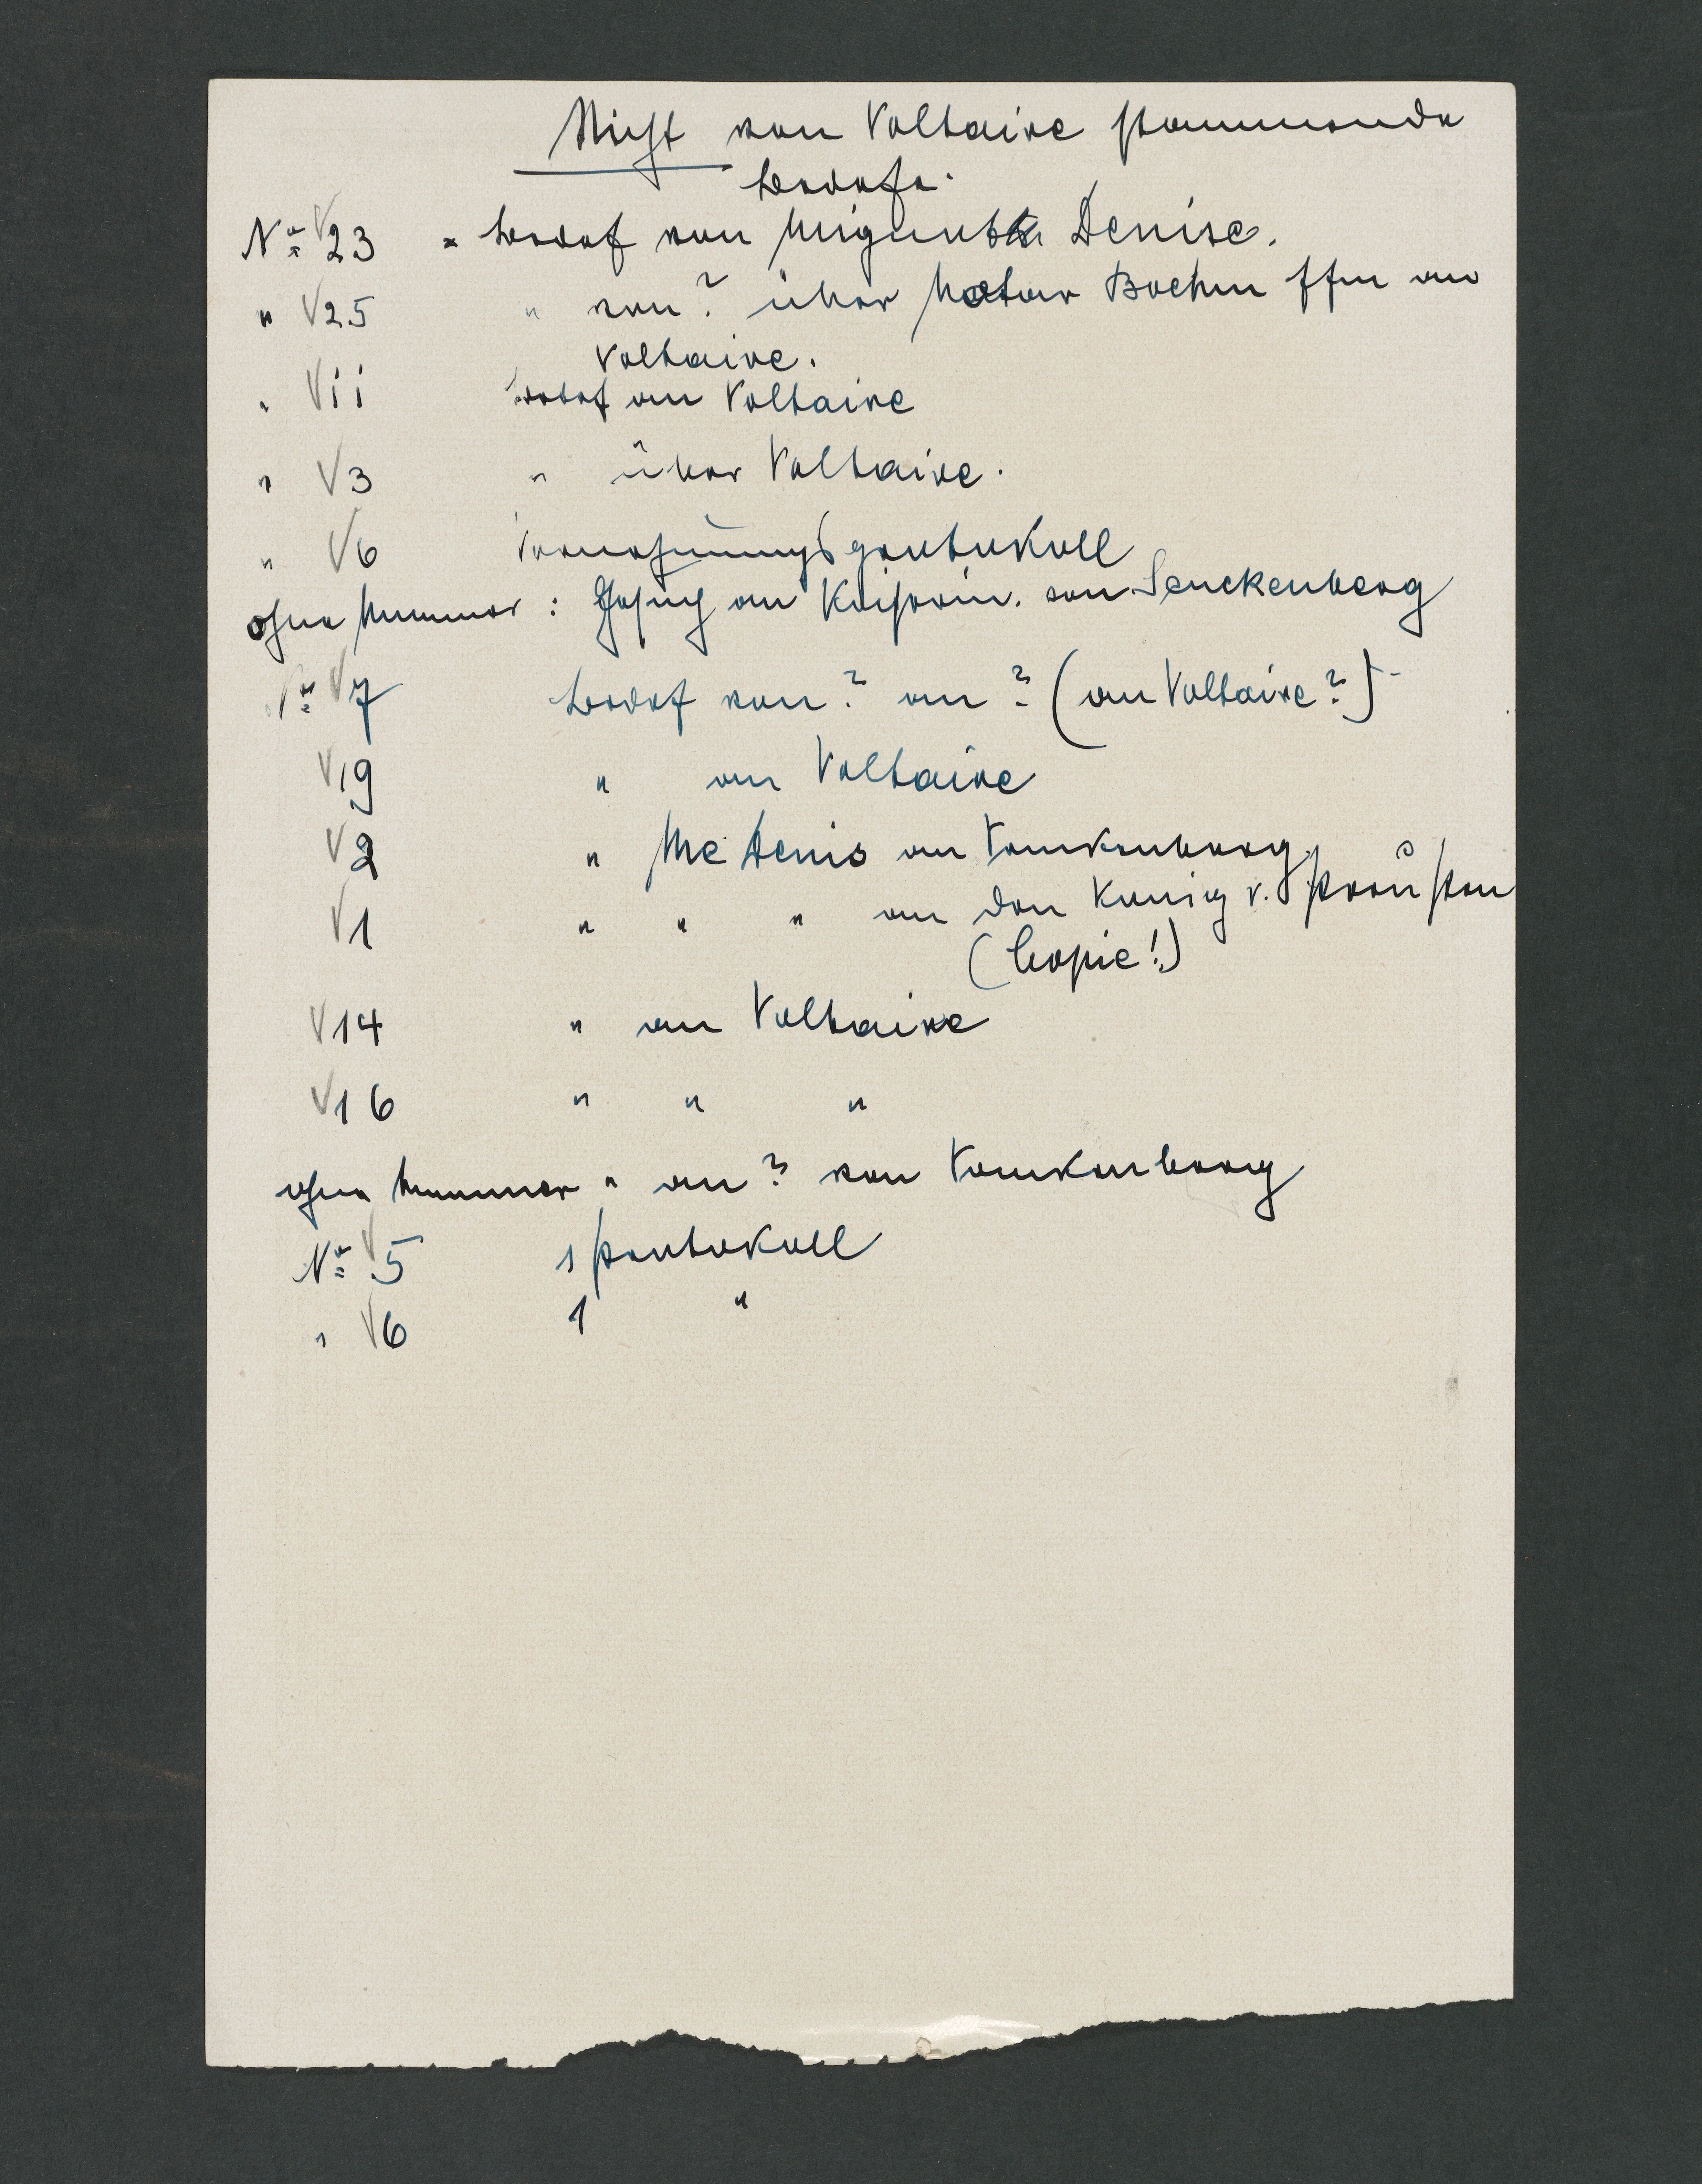 Nicht von Voltaire stammende
Briefe.
No 23 = Brief von Mignotte Denise.
" 25 " von ? über Notar Boehm ffm an
Voltaire.
" 11 Brief an Voltaire
" 3 " über Voltaire.
" 6 Vernehmungsprotokoll
ohne Nummer : Gesuch an Kaiserin. von Senckenberg
No 7 Brief von ? an ? (an Voltaire?)
19 " an Voltaire
2 " Me Denis an Senkenberg
1 " " " an den König v. Preußen
(Copie!)
14 " an Voltaire
16 " " "
ohne Nummer " an ? von Senkenberg
No 5 1 Protokoll
" 6 1 "